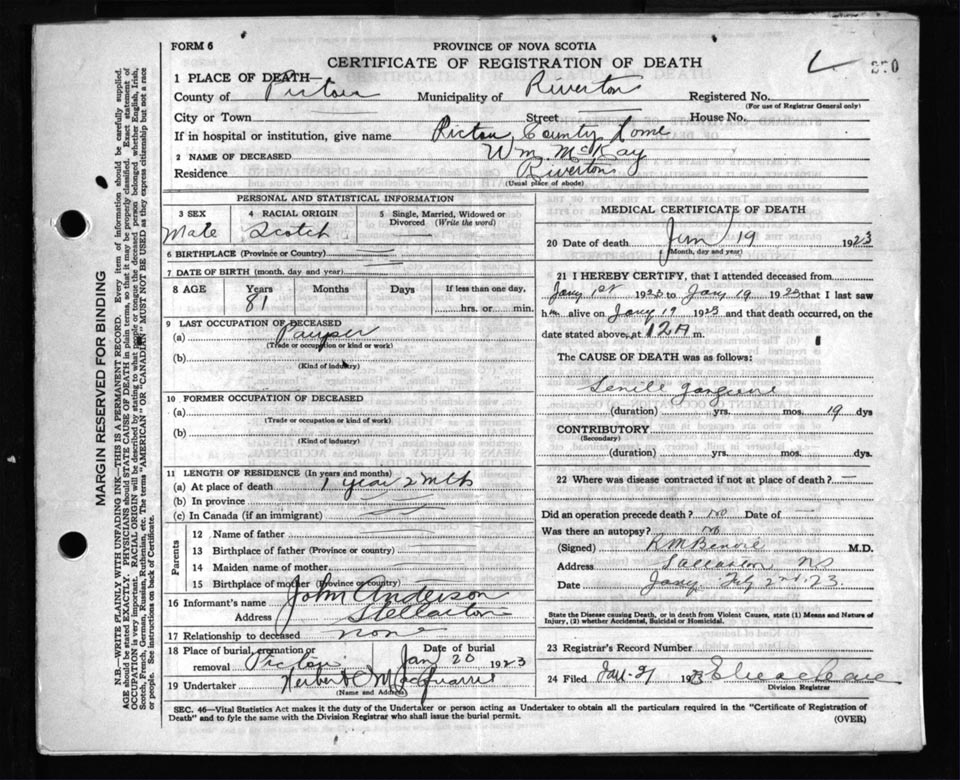 FORM 6
PROVINCE OF NOVA SCOTIA
CERTIFICATE OF REGISTRATION OF DEATH
1 PLACE OF DEATH—
County of Pictou Municipality of Riverton Registered No.
(For use of Registrar General only)
City or Town Street House No.
If in hospital or institution, give name Pictou County Home
2 NAME OF DECEASED Wm. McKay
Residence Riverton
(Usual place of abode)
PERSONAL AND STATISTICAL INFORMATION
3 SEX 4 RACIAL ORIGIN 5 Single, Married, Widowed or Divorced (Write the word)
Male Scotch
6 BIRTHPLACE (Province or Country)
7 DATE OF BIRTH (month, day and year)
8 AGE Years Months Days If less than one day,
81 hrs. or min.
9 LAST OCCUPATION OF DECEASED
(a) Pauper
(Trade or occupation or kind or work)
(b)
(Kind of industry)
10 FORMER OCCUPATION OF DECEASED
(a)
(Trade or occupation or kind of work)
(b)
(Kind of industry)
11 LENGTH OF RESIDENCE (In years and months)
(a) At place of death 1 year 2 mths
(b) In province
(c) In Canada (if an immigrant)
Parents
12 Name of father
13 Birthplace of father (Province or country)
14 Maiden name of mother
15 Birthplace of mother (Province or country)
16 Informant's name John Anderson
Address Stellarton
17 Relationship to deceased none
18 Place of burial, cremation or removal Pictou Date of burial Jan 20 1923
19 Undertaker Herbert C McQuarrie
(Name and Address)
MEDICAL CERTIFICATE OF DEATH
20 Date of death 19 1923
(Month, day and year)
21 I HEREBY CERTIFY, that I attended deceased from
Jany 1st 1923 to Jany 19 1923 that I last saw
him alive on Jany 19 1923 and that death occurred, on the
date stated above, at 12 A m.
The CAUSE OF DEATH was as follows:
Senile gangrene
(duration) yrs. mos. 19 dys
CONTRIBUTORY
(Secondary)
(duration) yrs. mos. dys.
22 Where was disease contracted if not at place of death? —
Did an operation precede death? No Date of —
Was there an autopsy? No
(Signed) M.D.
Address Stellarton NS
Date Jany Feby 2nd 23
State the Disease causing Death, or in death from Violent Causes, state (1) Means and Nature of
Injury, (2) whether Accidental, Suicidal or Homicidal.
23 Registrar's Record Number
24 Filed 192
Division Registrar
SEC. 46—Vital Statistics Act makes it the duty of the Undertaker or person acting as Undertaker to obtain all the particulars required in the "Certificate of Registration of
Death" and to fyle the same with the Division Registrar who shall issue the burial permit. (OVER)
MARGIN RESERVED FOR BINDING
N.B.—WRITE PLAINLY WITH UNFADING INK—THIS IS A PERMANENT RECORD. Every item of information should be carefully supplied.
AGE should be stated EXACTLY. PHYSICIANS should STATE CAUSE OF DEATH in plain terms, so that it may be properly classified. Exact statement of
OCCUPATION is very important. RACIAL ORIGIN will be described by stating to what people or tongue the deceased person belonged whether English, Irish,
Scotch, French, German, Russian, Ruthenian, etc. The terms "AMERICAN" OR "CANADIAN" MUST NOT BE USED as they express citizenship but not a race
or people. See instructions on back of Certificate.